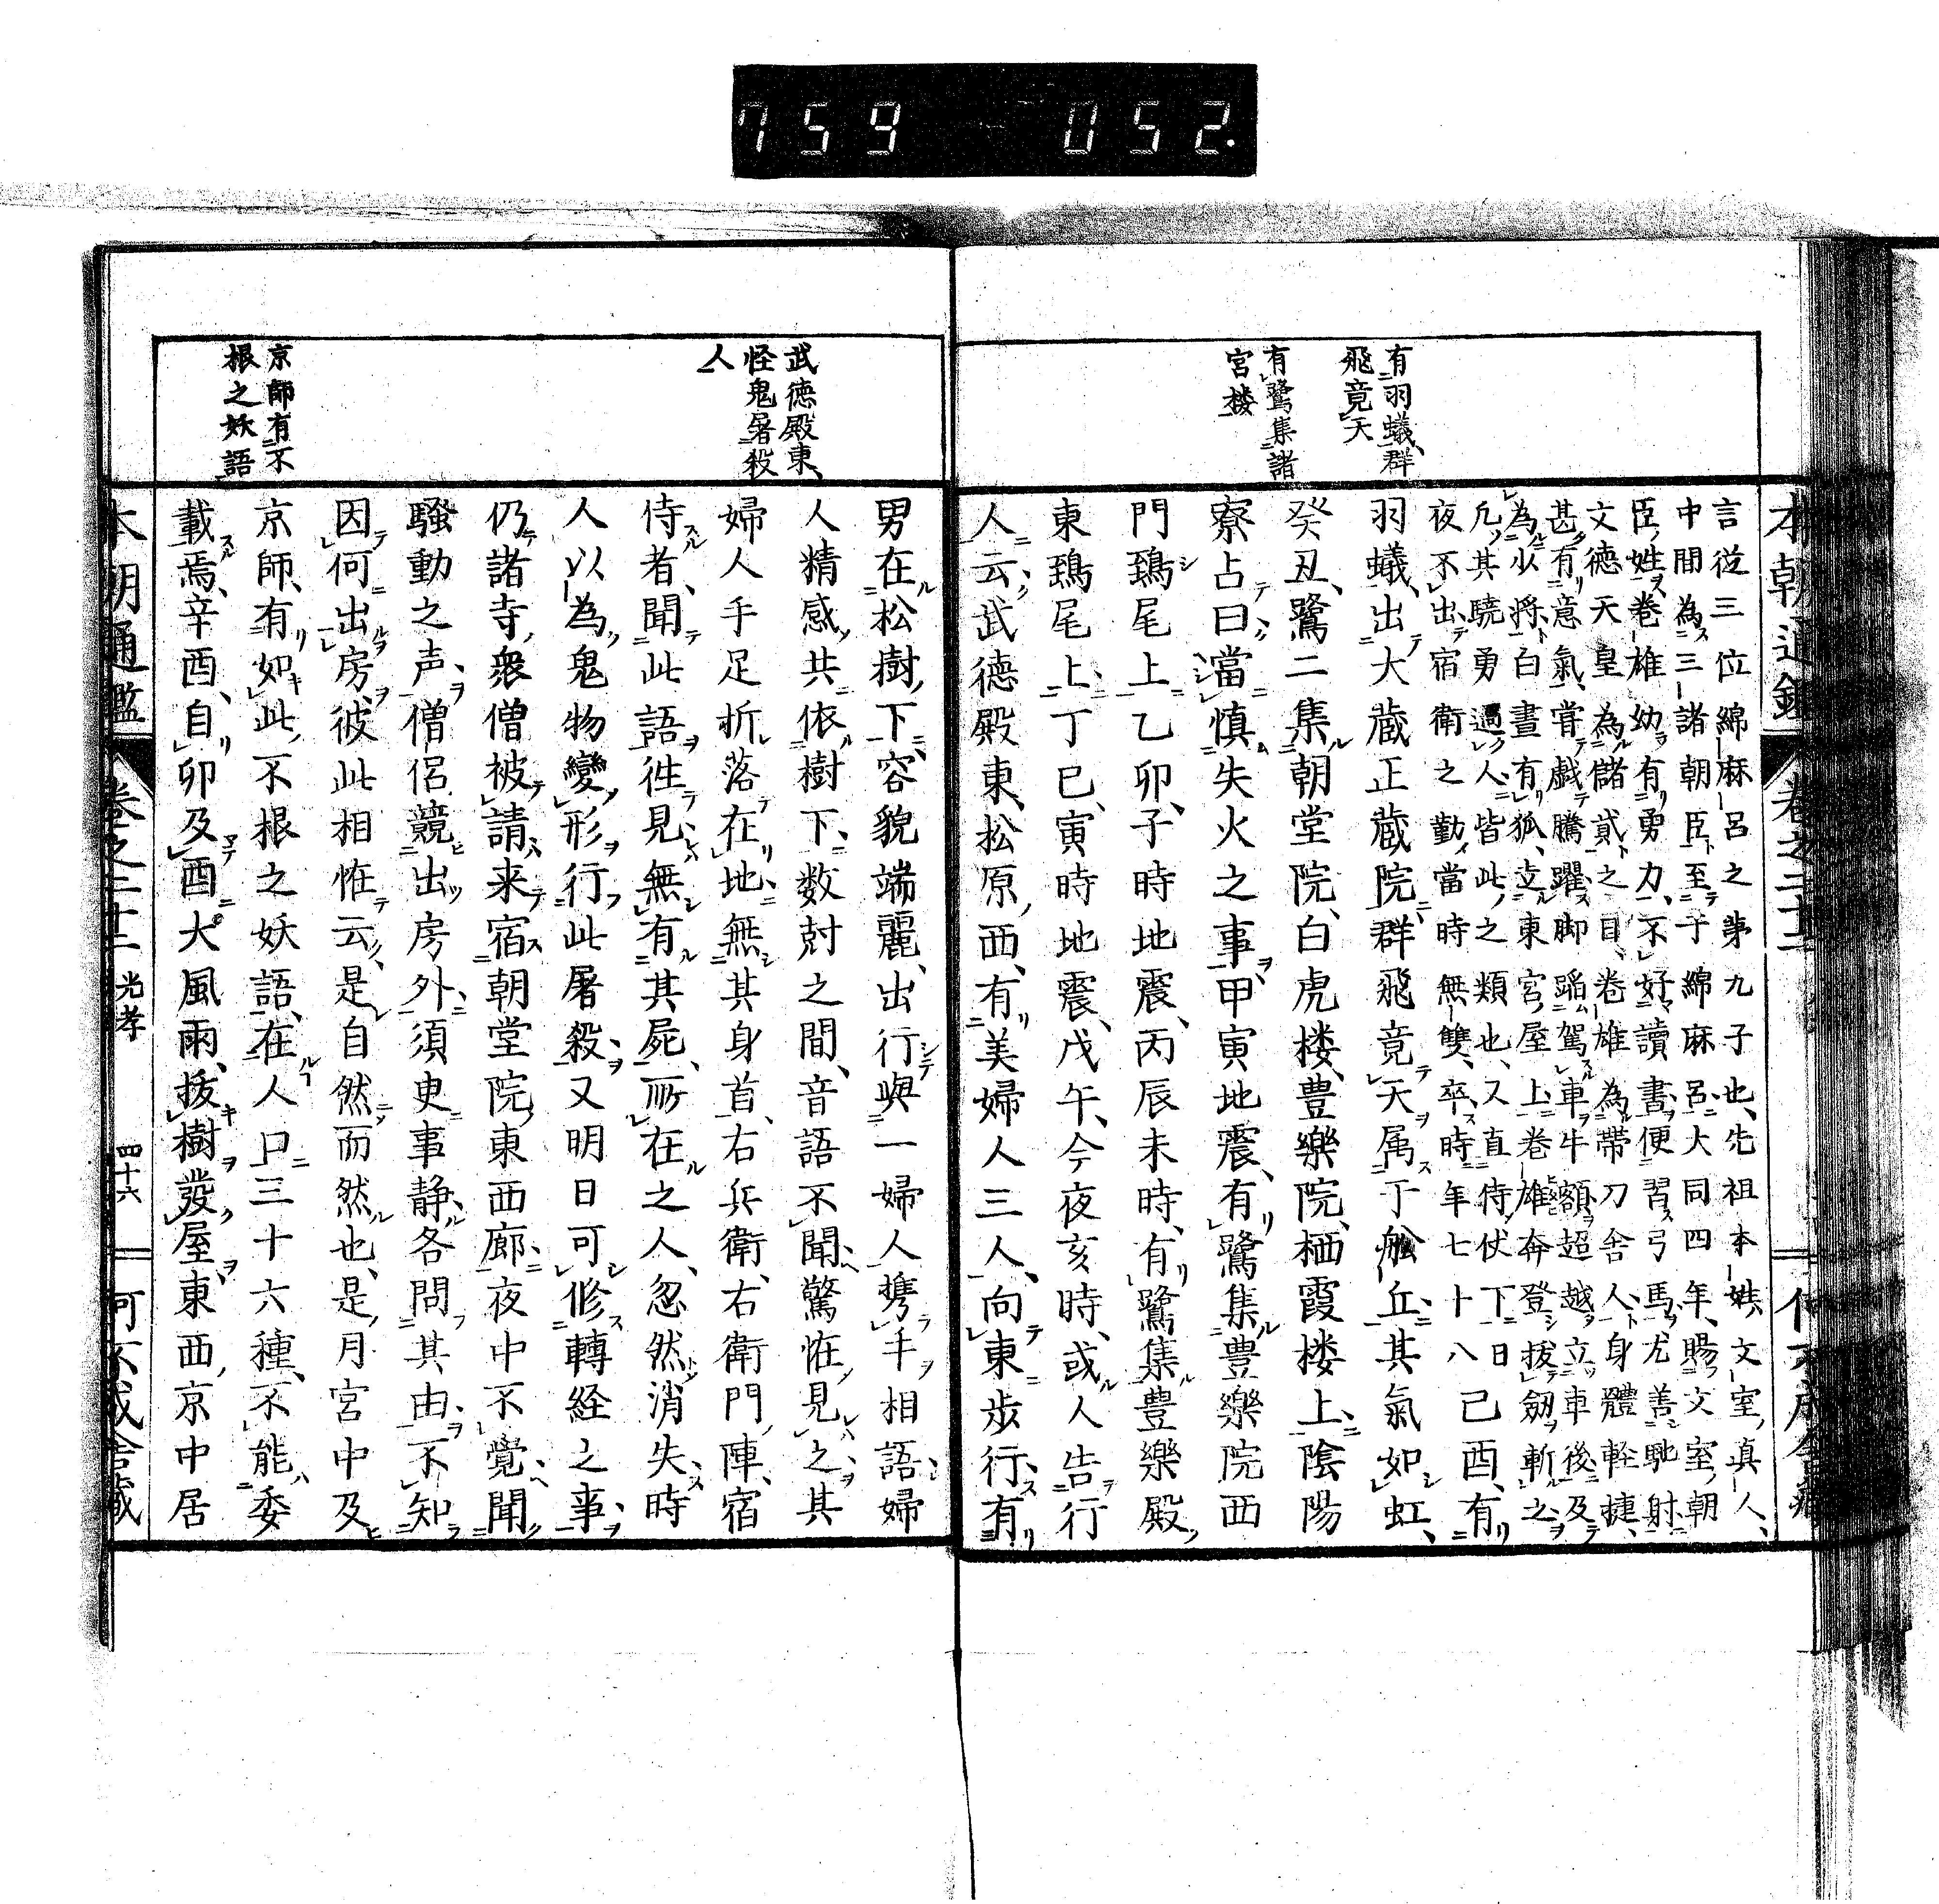 759 052.
本朝通鑑 卷之二十二
有羽蟻群
飛竟天
有鷺集諸
宮楼
言從三位綿麻呂之第九子也先祖本姓文室真人
中間為三諸朝臣至子綿麻呂大同四年賜文室朝
臣姓巻雄幼有勇力不好讀書便習弓馬尤善馳射
文德天皇為儲貳之日巻雄為帶刀舎人身體輕捷
甚有意氣嘗戯騰躍脚蹈駕車牛額超越立車後及
為少将白晝有狐走東宮屋上巻雄奔登拔劔斬之
凢其驍勇過人皆此之類也又直侍仗下日
夜不出宿衛之勤當時無雙卒時年七十八己酉有
羽蟻出大蔵正蔵院群飛竟天属于舩丘其氣如虹
癸丑鷺二集朝堂院白虎楼豊樂院栖霞楼上陰陽
寮占曰當慎失火之事甲寅地震有鷺集豊樂院西
門鵄尾上乙卯子時地震丙辰未時有鷺集豊樂殿
東鵄尾上丁巳寅時地震戊午今夜亥時或人告行
人云武德殿東松原西有美婦人三人向東歩行有
武德殿東
怪鬼屠殺
人
京師有不
根之妖語
男在松樹下容貌端麗出行與一婦人攜手相語婦
人精感共依樹下数尅之間音語不聞驚恠見之其
婦人手足折落在地無其身首右兵衛右衛門陣宿
侍者聞此語徃見無有其屍所在之人忽然消失時
人以為鬼物變形行此屠殺又明日可修轉経之事
仍諸寺衆僧被請来宿朝堂院東西廊夜中不覺聞
騷動之声僧侶競出房外須臾事静各問其由不知
因何出房彼此相恠云是自然而然也是月宮中及
京師有如此不根之妖語在人口三十六種不能委
載焉辛酉自卯及酉大風雨拔樹發屋東西京中居
本朝通鑑 卷之二十二 光孝 四十六